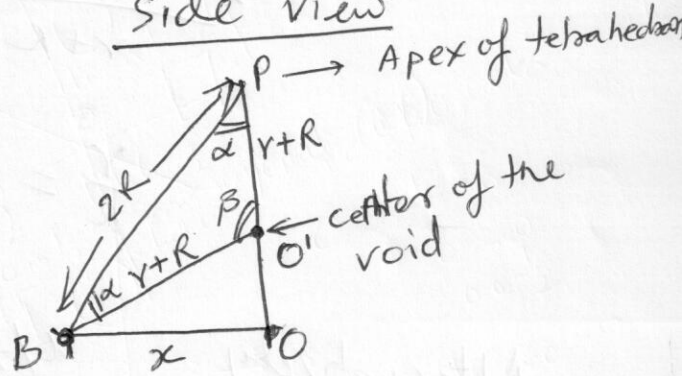 Side View
P → Apex of tetrahedron
α r+R
2R
β
O' ← center of the
void
α r+R
B x O